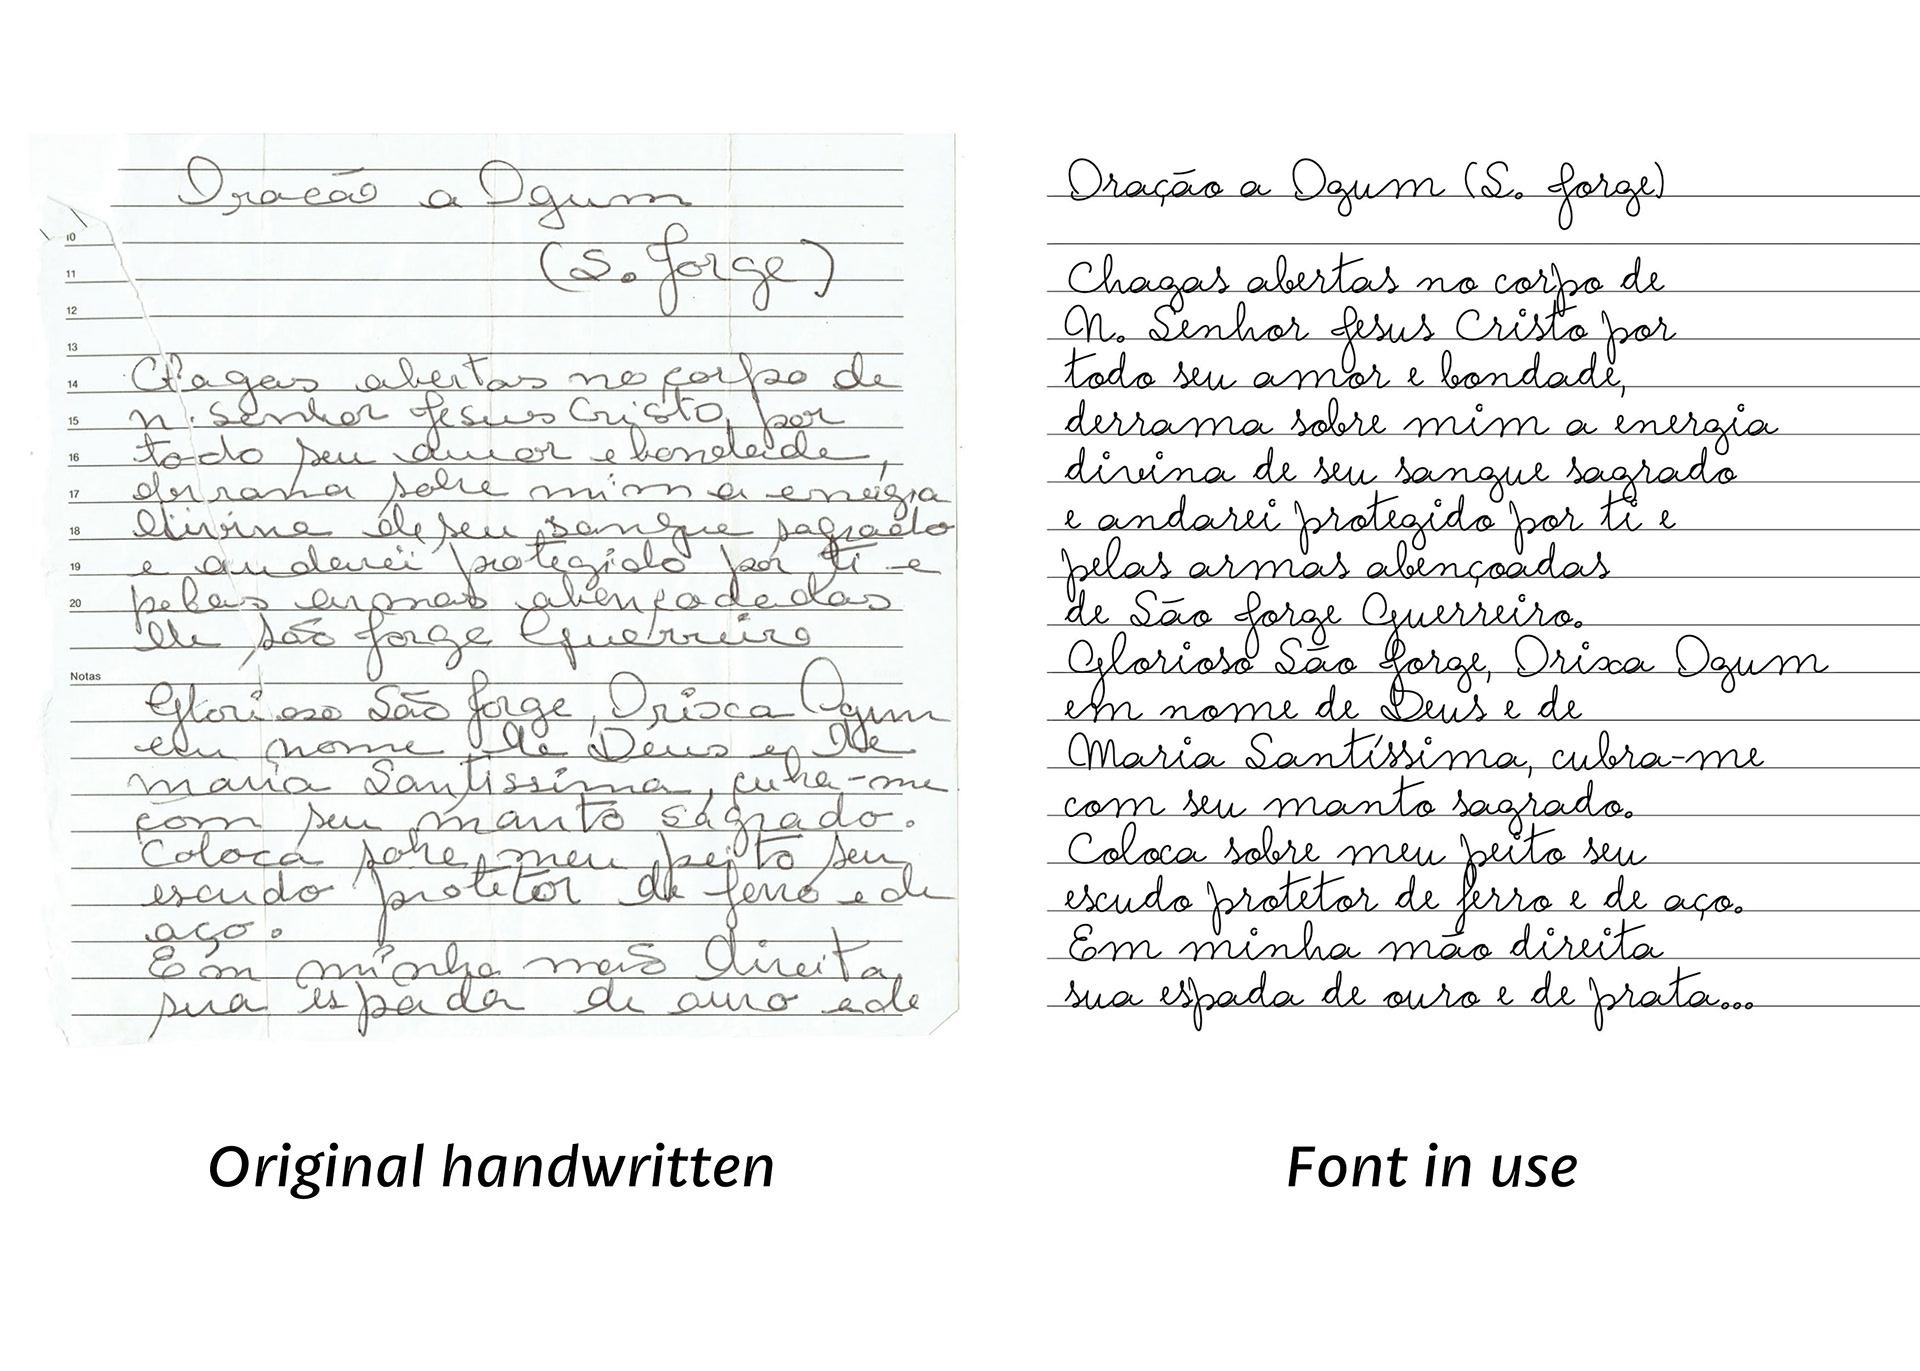 Oração a Ogum
(S. Jorge)
10
11
12
13
14
15
16
17
18
19
20
Notas
Chagas abertas no corpo de
N. Senhor Jesus Cristo, por
todo seu amor e bondade,
derrama sobre mim a energia
divina de seu sangue sagrado
e andarei protegido por ti e
pelas armas abençodadas
de São Jorge Guerreiro
Glorioso São Jorge, Orixa Ogum
em nome de Deus e de
Maria Santissima, cubra-me
com seu manto sagrado.
Coloca sobre meu peito seu
escudo protetor de ferro e de
aço.
Em minha mão direita
sua espada de ouro e de
Original handwritten
Oração a Ogum (S. Jorge)
Chagas abertas no corpo de
N. Senhor Jesus Cristo por
todo seu amor e bondade,
derrama sobre mim a energia
divina de seu sangue sagrado
e andarei protegido por ti e
pelas armas abençoadas
de São Jorge Guerreiro.
Glorioso São Jorge, Orixa Ogum
em nome de Deus e de
Maria Santíssima, cubra-me
com seu manto sagrado.
Coloca sobre meu peito seu
escudo protetor de ferro e de aço.
Em minha mão direita
sua espada de ouro e de prata...
Font in use